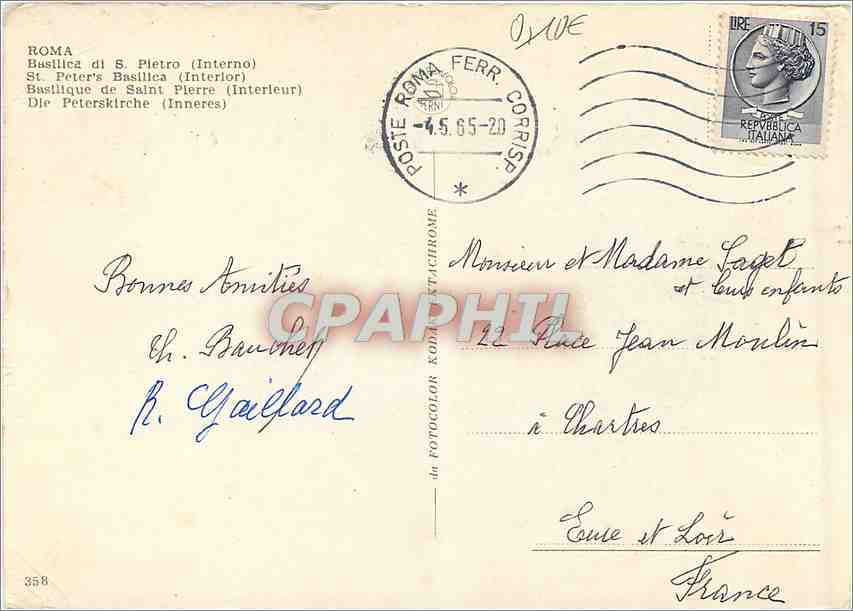 ROMA
Basilica di S. Pietro (Interno)
St. Peter's Basilica (Interior)
Basilique de Saint Pierre (Interieur)
Die Peterskirche (Inneres)
POSTE ROMA FERR. CORRISP.
-4.5.65-20
*
LIRE 15
POSTE
REPVBBLICA
ITALIANA
Bonnes Amitiés
Th. Bauchet
R. Gaillard
da FOTOCOLOR KODAK EKTACHROME
CPAPHIL
Monsieur et Madame Saget
et leurs enfants
22 Place Jean Moulin
à Chartres
Eure et Loir
France
358